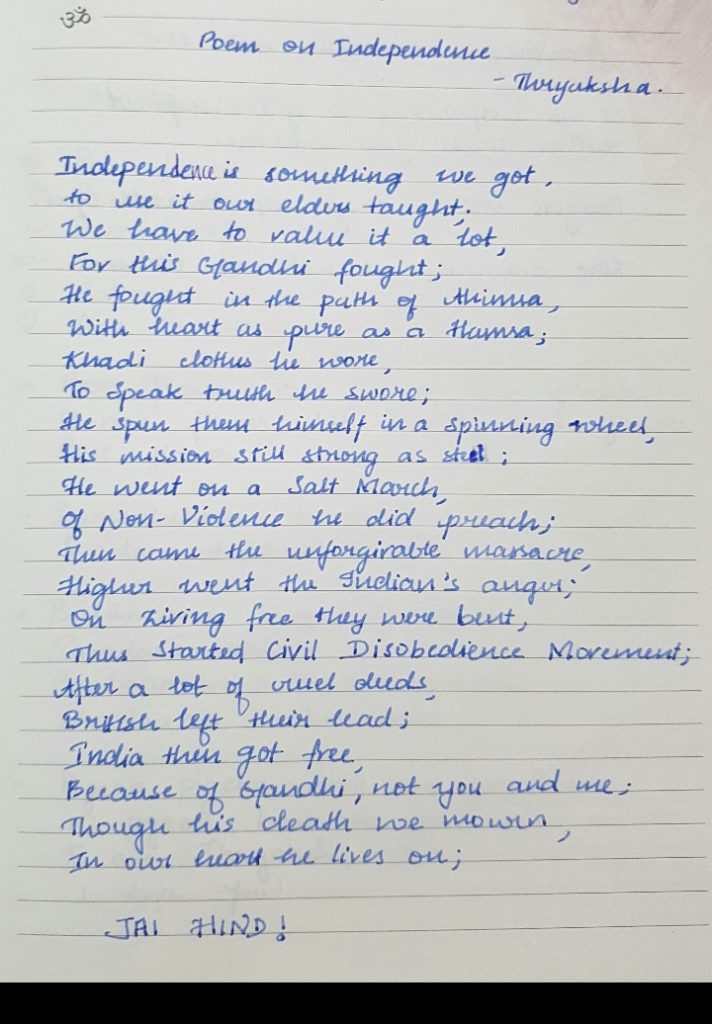 ॐ
Poem on Independence
- Thryaksha.
Independence is something we got,
to use it our elders taught;
We have to value it a lot,
For this Gandhi fought;
He fought in the path of Ahimsa,
With heart as pure as a Hamsa;
Khadi clothes he wore,
To Speak truth he swore;
He spun them himself in a spinning wheel,
His mission still strong as steel;
He went on a Salt March,
Of Non-Violence he did preach;
Then came the unforgivable massacre,
Higher went the Indian's anger;
On Living free they were bent,
Thus Started Civil Disobedience Movement;
After a lot of cruel deeds,
British left their lead;
India then got free,
Because of Gandhi, not you and me;
Though his death we mourn,
In our heart he lives on;
JAI HIND!